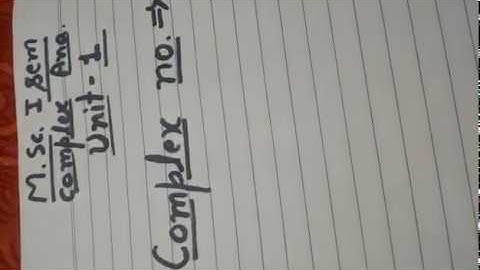 M.Sc. I Sem
Complex Ana.
Unit - 1
Complex no. ⇒